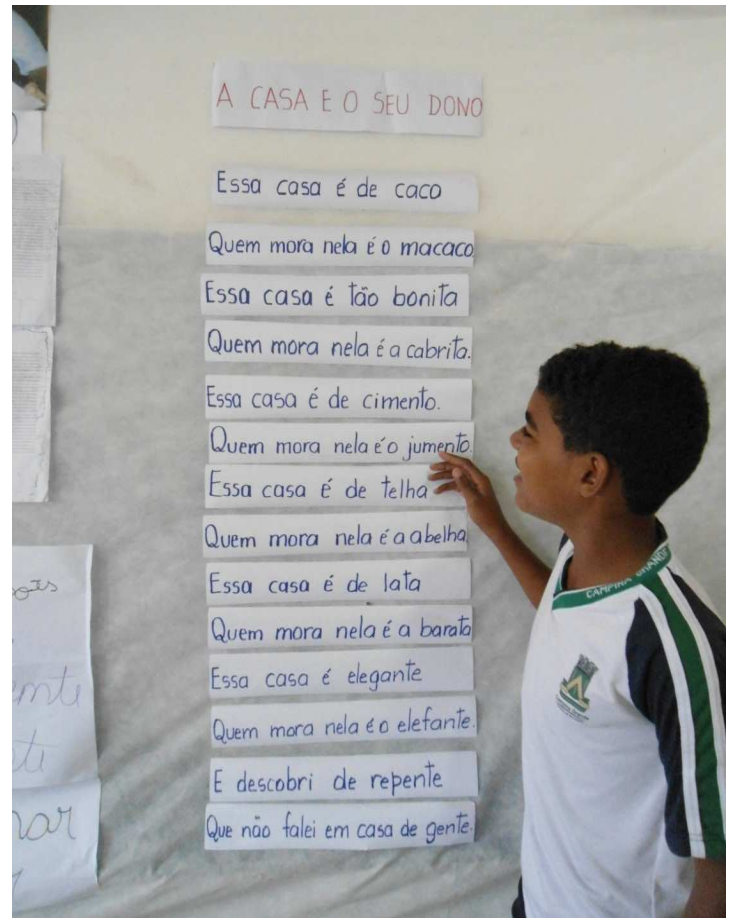 A CASA E O SEU DONO
Essa casa é de caco
Quem mora nela é o macaco.
Essa casa é tão bonita
Quem mora nela é a cabrita.
Essa casa é de cimento.
Quem mora nela é o jumento.
Essa casa é de telha
Quem mora nela é a abelha.
Essa casa é de lata
Quem mora nela é a barata
Essa casa é elegante
Quem mora nela é o elefante.
E descobri de repente
Que não falei em casa de gente.
CAMPINA GRANDE